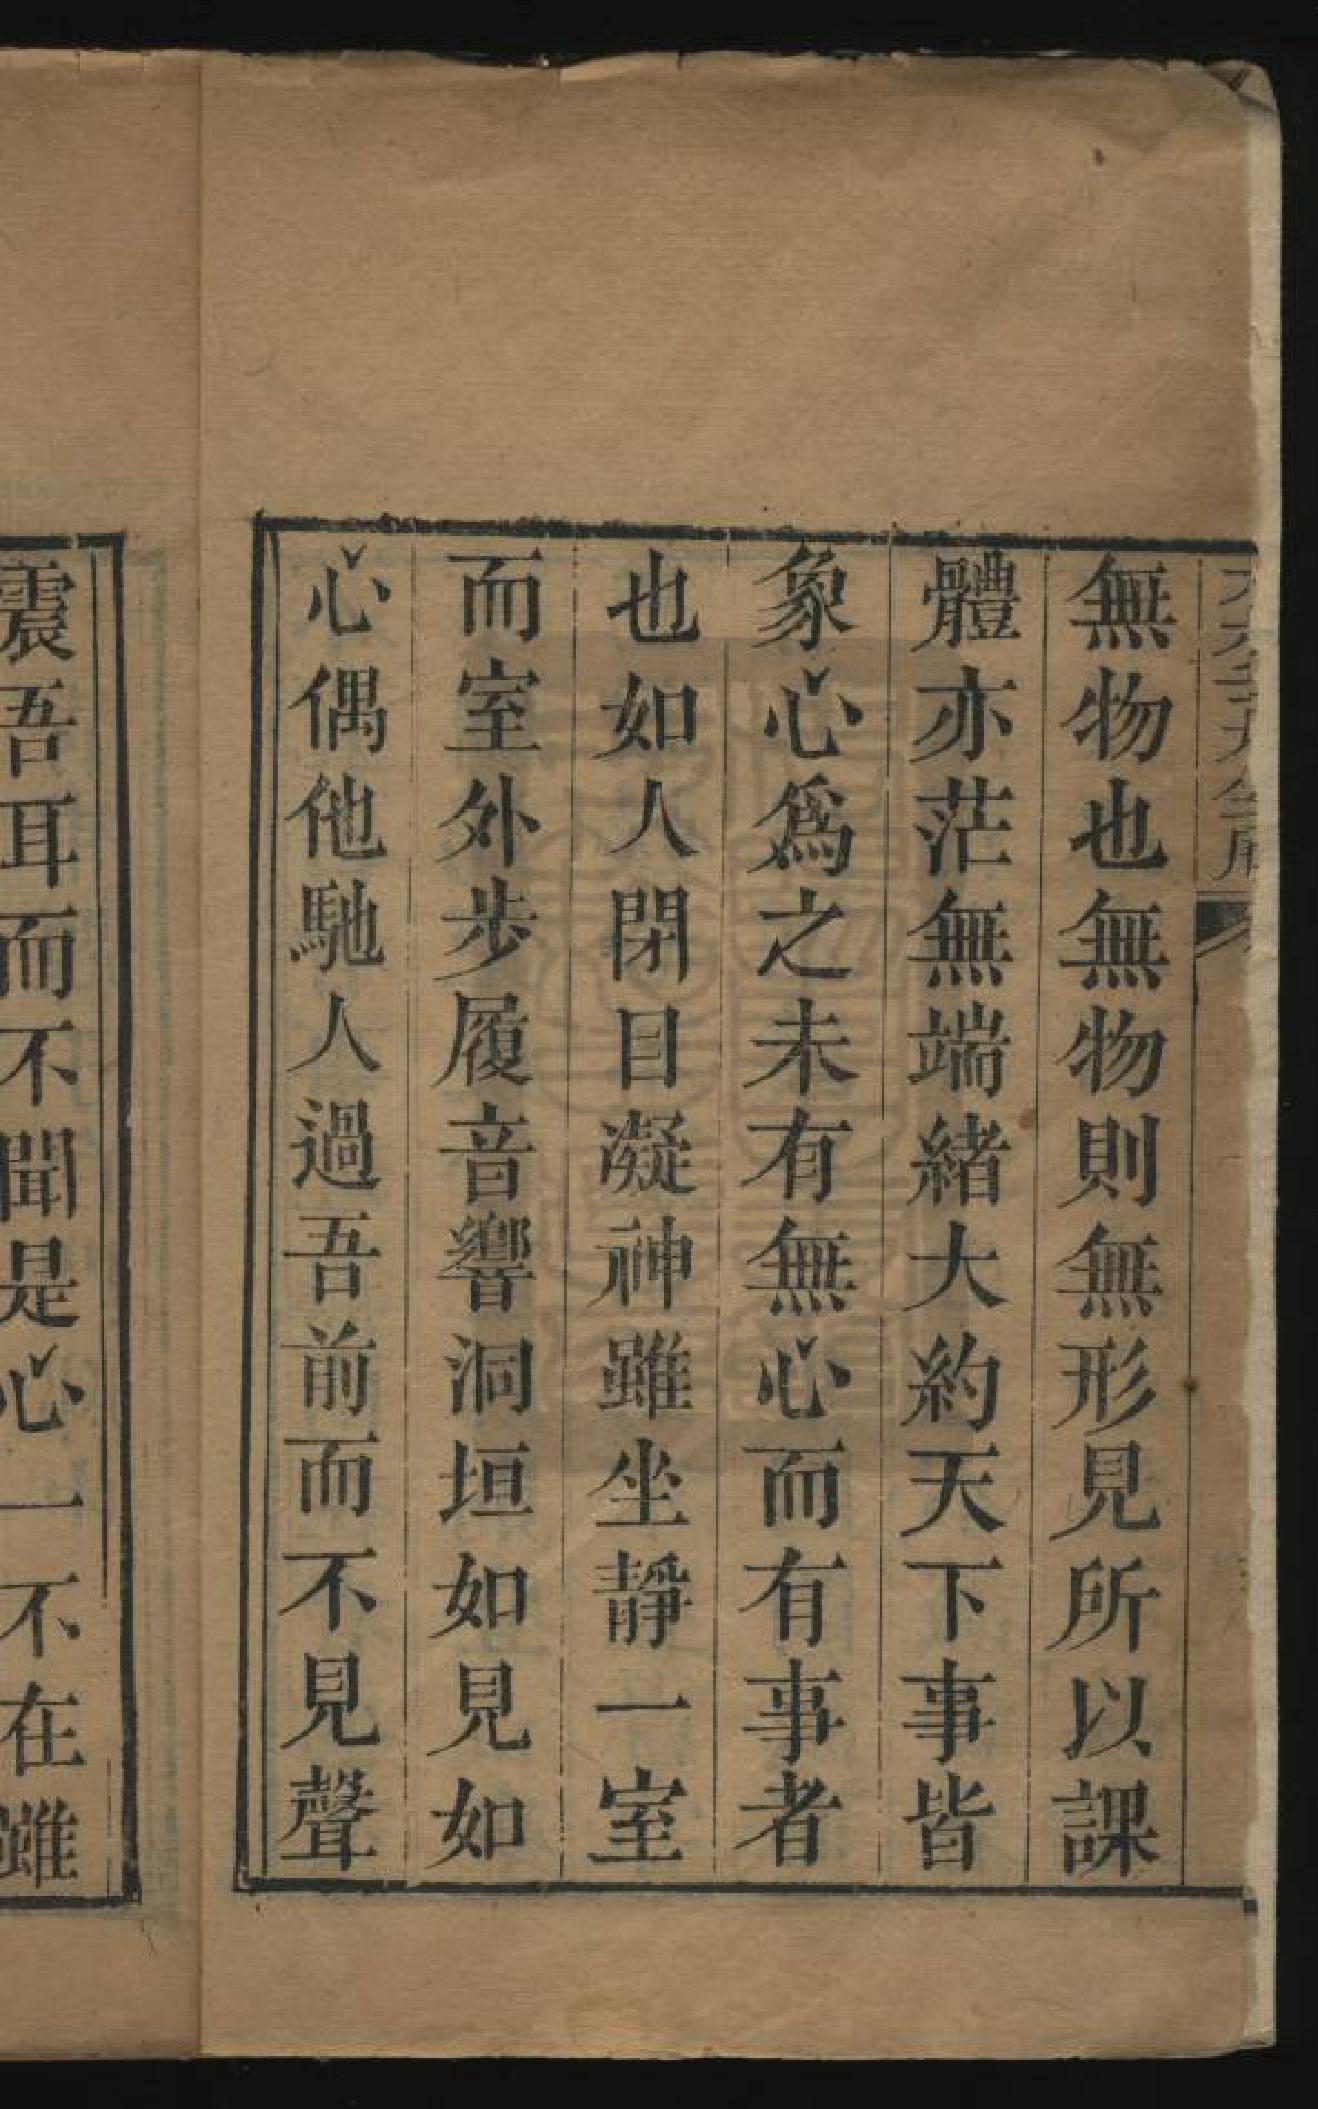 無物也無物則無形見所以課
體亦茫無端緒大約天下事皆
象心爲之未有無心而有事者
也如人閉目凝神雖坐靜一室
而室外步履音響洞垣如見如
心偶他馳人過吾前而不見聲
震吾耳而不聞是心一不在雖